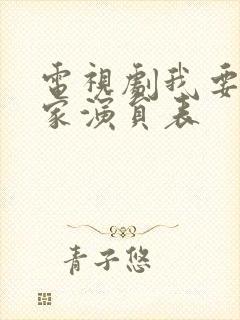 電視劇我要
家演員表
青子悠